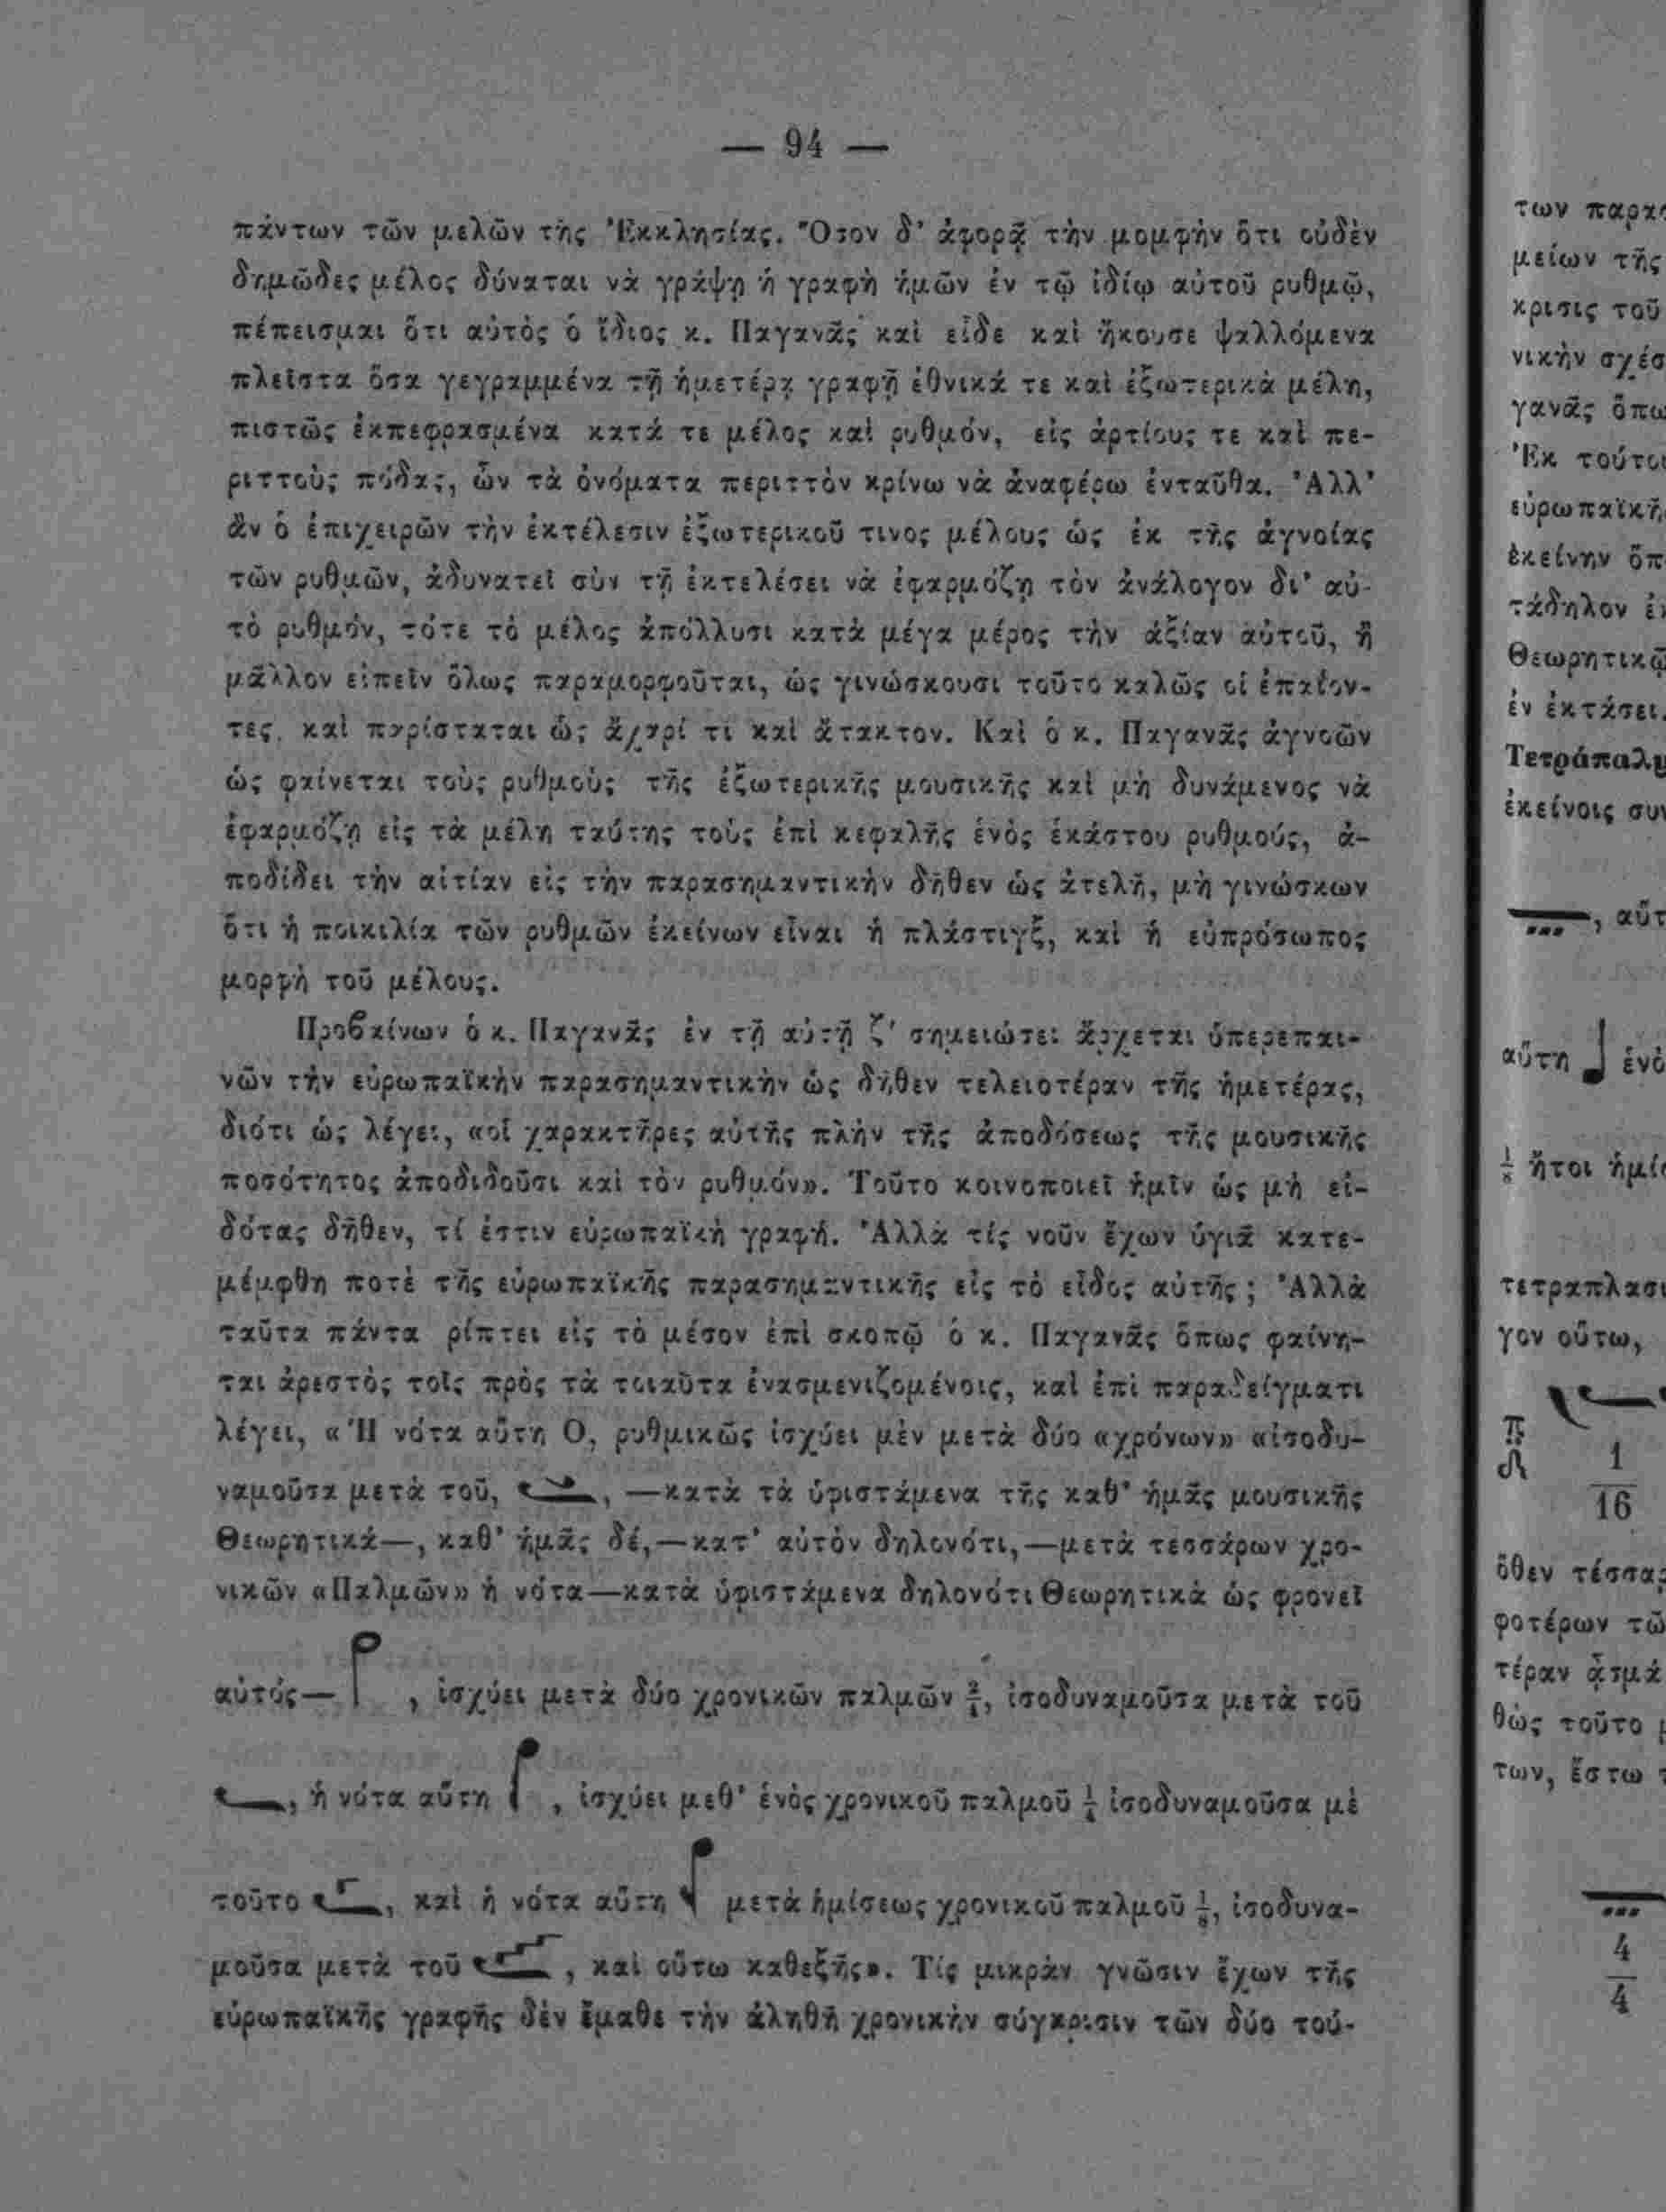 — 94 —
πάντων τῶν μελῶν τῆς Ἐκκλησίας. Ὅσον δ' ἀφορᾷ τὴν μομφὴν ὅτι οὐδὲν
δημῶδες μέλος δύναται νὰ γράψῃ ἡ γραφὴ ἡμῶν ἐν τῷ ἰδίῳ αὐτοῦ ρυθμῷ,
πέπεισμαι ὅτι αὐτὸς ὁ ἴδιος κ. Παγανᾶς καὶ εἶδε καὶ ἤκουσε ψαλλόμενα
πλεῖστα ὅσα γεγραμμένα τῇ ἡμετέρᾳ γραφῇ ἐθνικά τε καὶ ἐξωτερικὰ μέλη,
πιστῶς ἐκπεφρασμένα κατά τε μέλος καὶ ρυθμόν, εἰς ἀρτίους τε καὶ πε-
ριττοὺς πόδας, ὧν τὰ ὀνόματα περιττὸν κρίνω νὰ ἀναφέρω ἐνταῦθα. Ἀλλ'
ἂν ὁ ἐπιχειρῶν τὴν ἐκτέλεσιν ἐξωτερικοῦ τινος μέλους ὡς ἐκ τῆς ἀγνοίας
τῶν ρυθμῶν, ἀδυνατεῖ σὺν τῇ ἐκτελέσει νὰ ἐφαρμόζῃ τὸν ἀνάλογον δι' αὐ-
τὸ ρυθμόν, τότε τὸ μέλος ἀπόλλυσι κατὰ μέγα μέρος τὴν ἀξίαν αὐτοῦ, ἢ
μᾶλλον εἰπεῖν ὅλως παραμορφοῦται, ὡς γινώσκουσι τοῦτο καλῶς οἱ ἐπαΐον-
τες, καὶ παρίσταται ὡς ἄχαρί τι καὶ ἄτακτον. Καὶ ὁ κ. Παγανᾶς ἀγνοῶν
ὡς φαίνεται τοὺς ρυθμοὺς τῆς ἐξωτερικῆς μουσικῆς καὶ μὴ δυνάμενος νὰ
ἐφαρμόζῃ εἰς τὰ μέλη ταύτης τοὺς ἐπὶ κεφαλῆς ἑνὸς ἑκάστου ρυθμούς, ἀ-
ποδίδει τὴν αἰτίαν εἰς τὴν παρασημαντικὴν δῆθεν ὡς ἀτελῆ, μὴ γινώσκων
ὅτι ἡ ποικιλία τῶν ρυθμῶν ἐκείνων εἶναι ἡ πλάστιγξ, καὶ ἡ εὐπρόσωπος
μορφὴ τοῦ μέλους.
Προβαίνων ὁ κ. Παγανᾶς ἐν τῇ αὐτῇ ζ' σημειώσει ἄρχεται ὑπερεπαι-
νῶν τὴν εὐρωπαϊκὴν παρασημαντικὴν ὡς δῆθεν τελειοτέραν τῆς ἡμετέρας,
διότι ὡς λέγει, «οἱ χαρακτῆρες αὐτῆς πλὴν τῆς ἀποδόσεως τῆς μουσικῆς
ποσότητος ἀποδιδοῦσι καὶ τὸν ρυθμόν». Τοῦτο κοινοποιεῖ ἡμῖν ὡς μὴ εἰ-
δότας δῆθεν, τί ἐστιν εὐρωπαϊκὴ γραφή. Ἀλλὰ τίς νοῦν ἔχων ὑγιᾶ κατε-
μέμφθη ποτὲ τῆς εὐρωπαϊκῆς παρασημαντικῆς εἰς τὸ εἶδος αὐτῆς; Ἀλλὰ
ταῦτα πάντα ρίπτει εἰς τὸ μέσον ἐπὶ σκοπῷ ὁ κ. Παγανᾶς ὅπως φαίνη-
ται ἀρεστὸς τοῖς πρὸς τὰ τοιαῦτα ἐνασμενιζομένοις, καὶ ἐπὶ παραδείγματι
λέγει, «Ἡ νότα αὕτη Ο, ρυθμικῶς ἰσχύει μὲν μετὰ δύο «χρόνων» «ἰσοδυ-
ναμοῦσα μετὰ τοῦ, , —κατὰ τὰ ὑφιστάμενα τῆς καθ' ἡμᾶς μουσικῆς
Θεωρητικά—, καθ' ἡμᾶς δέ,—κατ' αὐτὸν δηλονότι,—μετὰ τεσσάρων χρο-
νικῶν «Παλμῶν» ἡ νότα—κατὰ ὑφιστάμενα δηλονότι Θεωρητικὰ ὡς φρονεῖ
αὐτός— , ἰσχύει μετὰ δύο χρονικῶν παλμῶν 2/4, ἰσοδυναμοῦσα μετὰ τοῦ
, ἡ νότα αὕτη , ἰσχύει μεθ' ἑνὸς χρονικοῦ παλμοῦ 1/4 ἰσοδυναμοῦσα μὲ
τοῦτο , καὶ ἡ νότα αὕτη μετὰ ἡμίσεως χρονικοῦ παλμοῦ 1/8, ἰσοδυνα-
μοῦσα μετὰ τοῦ , καὶ οὕτω καθεξῆς». Τίς μικρὰν γνῶσιν ἔχων τῆς
εὐρωπαϊκῆς γραφῆς δὲν ἔμαθε τὴν ἀληθῆ χρονικὴν σύγκρισιν τῶν δύο τού-
των παρασ
μείων τῆς
κρισις τοῦ
νικὴν σχέσ
γανᾶς ὅπω
Ἐκ τούτο
εὐρωπαϊκῆ
ἐκείνην ὅπ
τάδηλον ἐ
Θεωρητικῷ
ἐν ἐκτάσει.
Τετράπαλμ
ἐκείνοις συν
, αὕτ
αὕτη ἑνὸ
1/8 ἤτοι ἡμί
τετραπλασι
γον οὕτω,
π
1
16
ὅθεν τέσσαρ
φοτέρων τῶ
τέραν ᾆσμά
θὼς τοῦτο
των, ἔστω
4
4